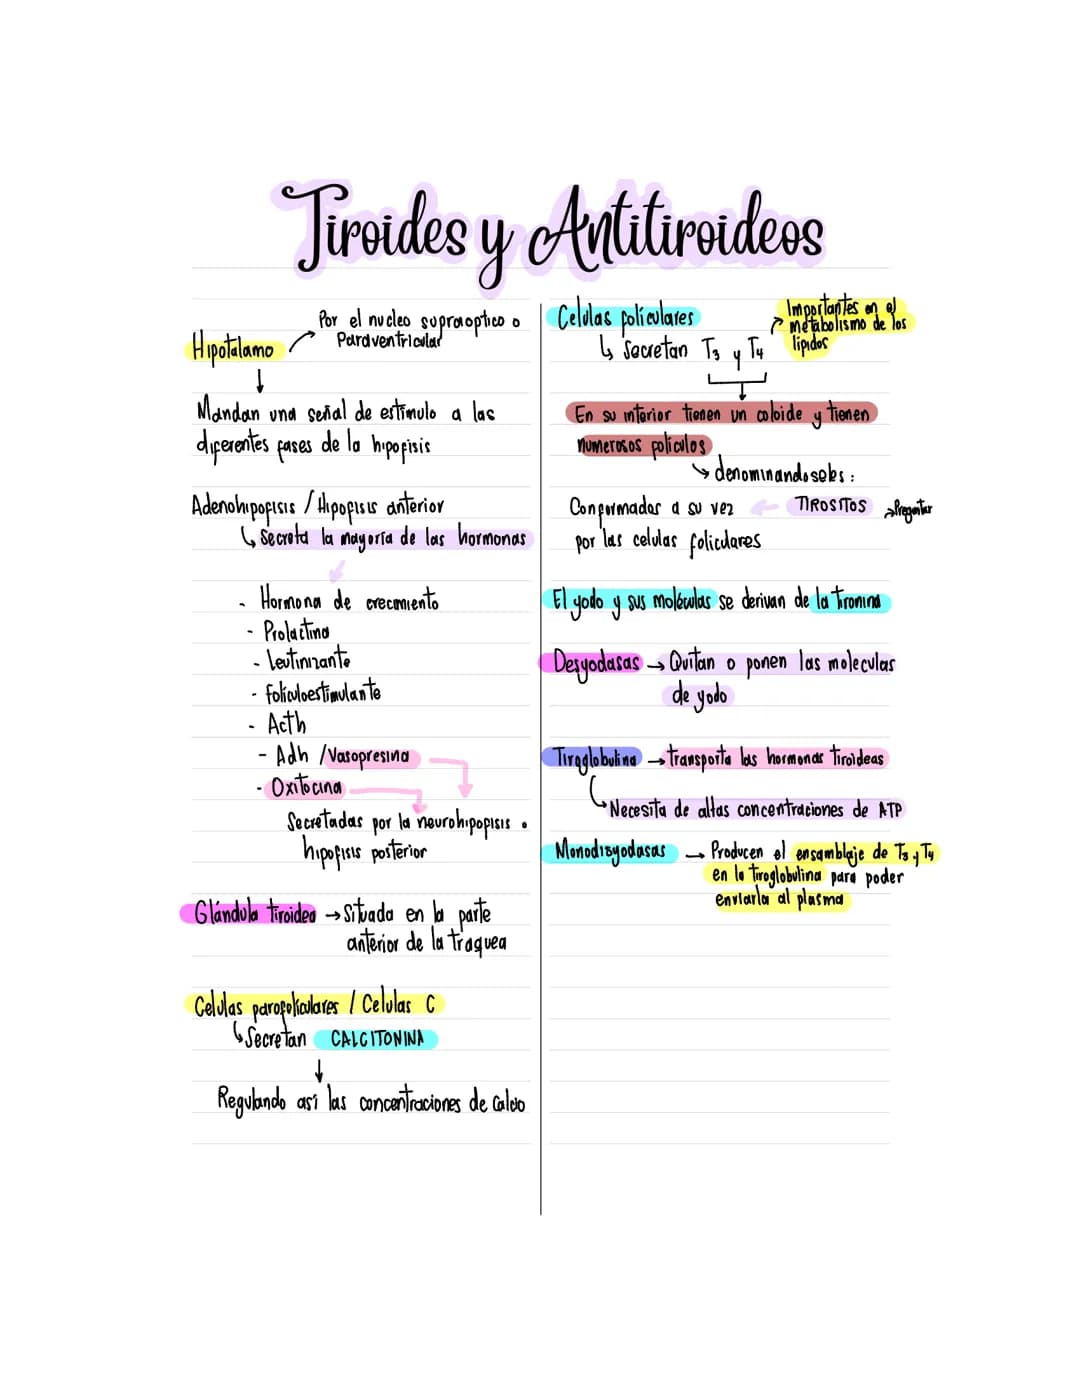 Tiroides y Antitiroideos
Por el nucleo supraoptico o
Paraventricular
Hipotalamo
Mandan una señal de estimulo a las
diferentes fases de la hipofisis
Adenohipofisis / Hipofisis anterior
Secreta la mayoria de las hormonas
- Hormona de crecimiento
- Prolactina
- Leutinizante
- foliculoestimulante
- Acth
- Adh / Vasopresina
- Oxitocina
Secretadas por la neurohipofisis o
hipofisis posterior
Glándula tiroidea → Situada en la parte
anterior de la traquea
Celulas parafoliculares / Celulas C
Secretan CALCITONINA
Regulando así las concentraciones de Calcio
Celulas foliculares
Secretan T3 y T4
Importantes en el
metabolismo de los
lipidos
En su interior tienen un coloide y tienen
numerosos foliculos
denominandoseles:
Conformados a su vez ← TIROSITOS → Preguntar
por las celulas foliculares
El yodo y sus moléculas se derivan de la tironina
Desyodasas → Quitan o ponen las moleculas
de yodo
Tiroglobulina → transporta las hormonas tiroideas
Necesita de altas concentraciones de ATP
Monodisyodasas → Producen el ensamblaje de T3 y T4
en la tiroglobulina para poder
enviarla al plasma